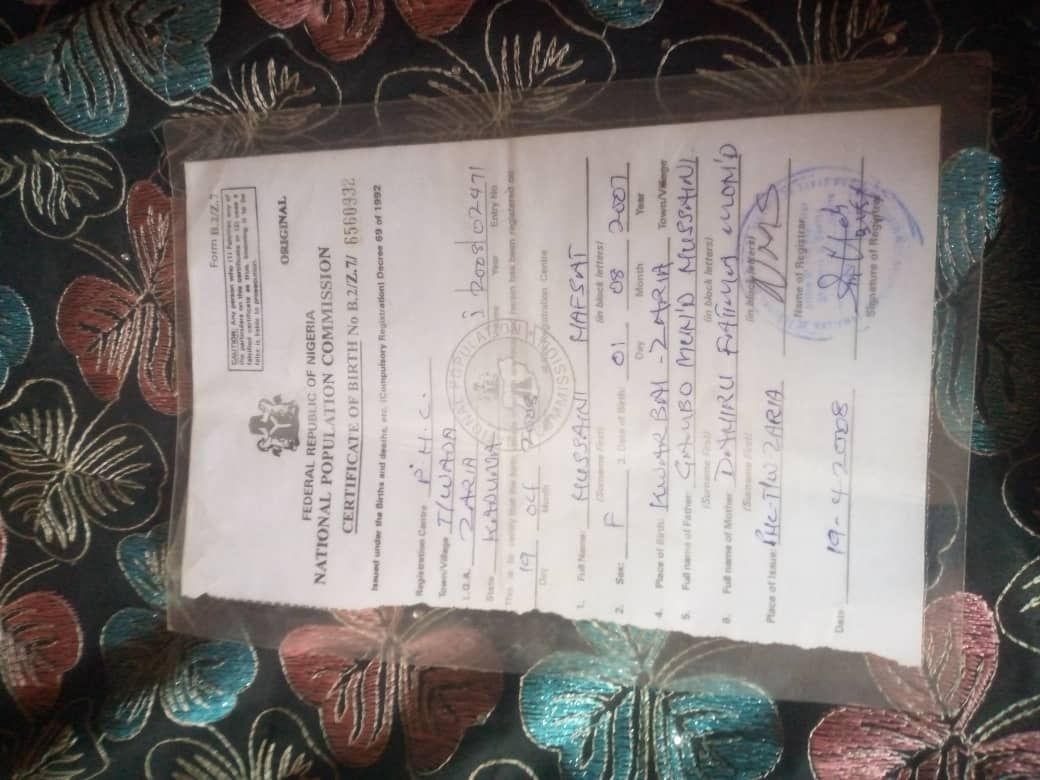 Form B.2/Z.7
CAUTION: Any person who (1) Falsifies any of
the particulars on this certificate or (2) uses a
falsified certificate as true, knowing it to be
false is liable to prosecution.
ORIGINAL
FEDERAL REPUBLIC OF NIGERIA
NATIONAL POPULATION COMMISSION
CERTIFICATE OF BIRTH No B.2/Z.7/ 6560932
Issued under the Births and deaths, etc. (Compulsory Registration) Decree 69 of 1992
Registration Centre P.H.C.
Town/Village T/WADA
L.G.A. ZARIA
State KADUNA 2008 02471
Year Entry No
This is to certify that the birth been registered on
19 04 2008
Day Month Registration Centre
1. Full Name: HUSSAINI HAFSAT
(Surname First) (in block letters)
2. Sex: F 3. Date of Birth: 01 08 2007
Day Month Year
4. Place of Birth: KWARBAI - ZARIA Town/Village
5. Full name of Father GAMBO MUH'D HUSSAINI
(Surname First) (in block letters)
6. Full name of Mother DAHIRU FATIMA MUOM'D
(Surname First) (in block letters)
Place of Issue: PHC-T/W ZARIA
Name of Registrar
Date 19-4-2008
Signature of Registrar